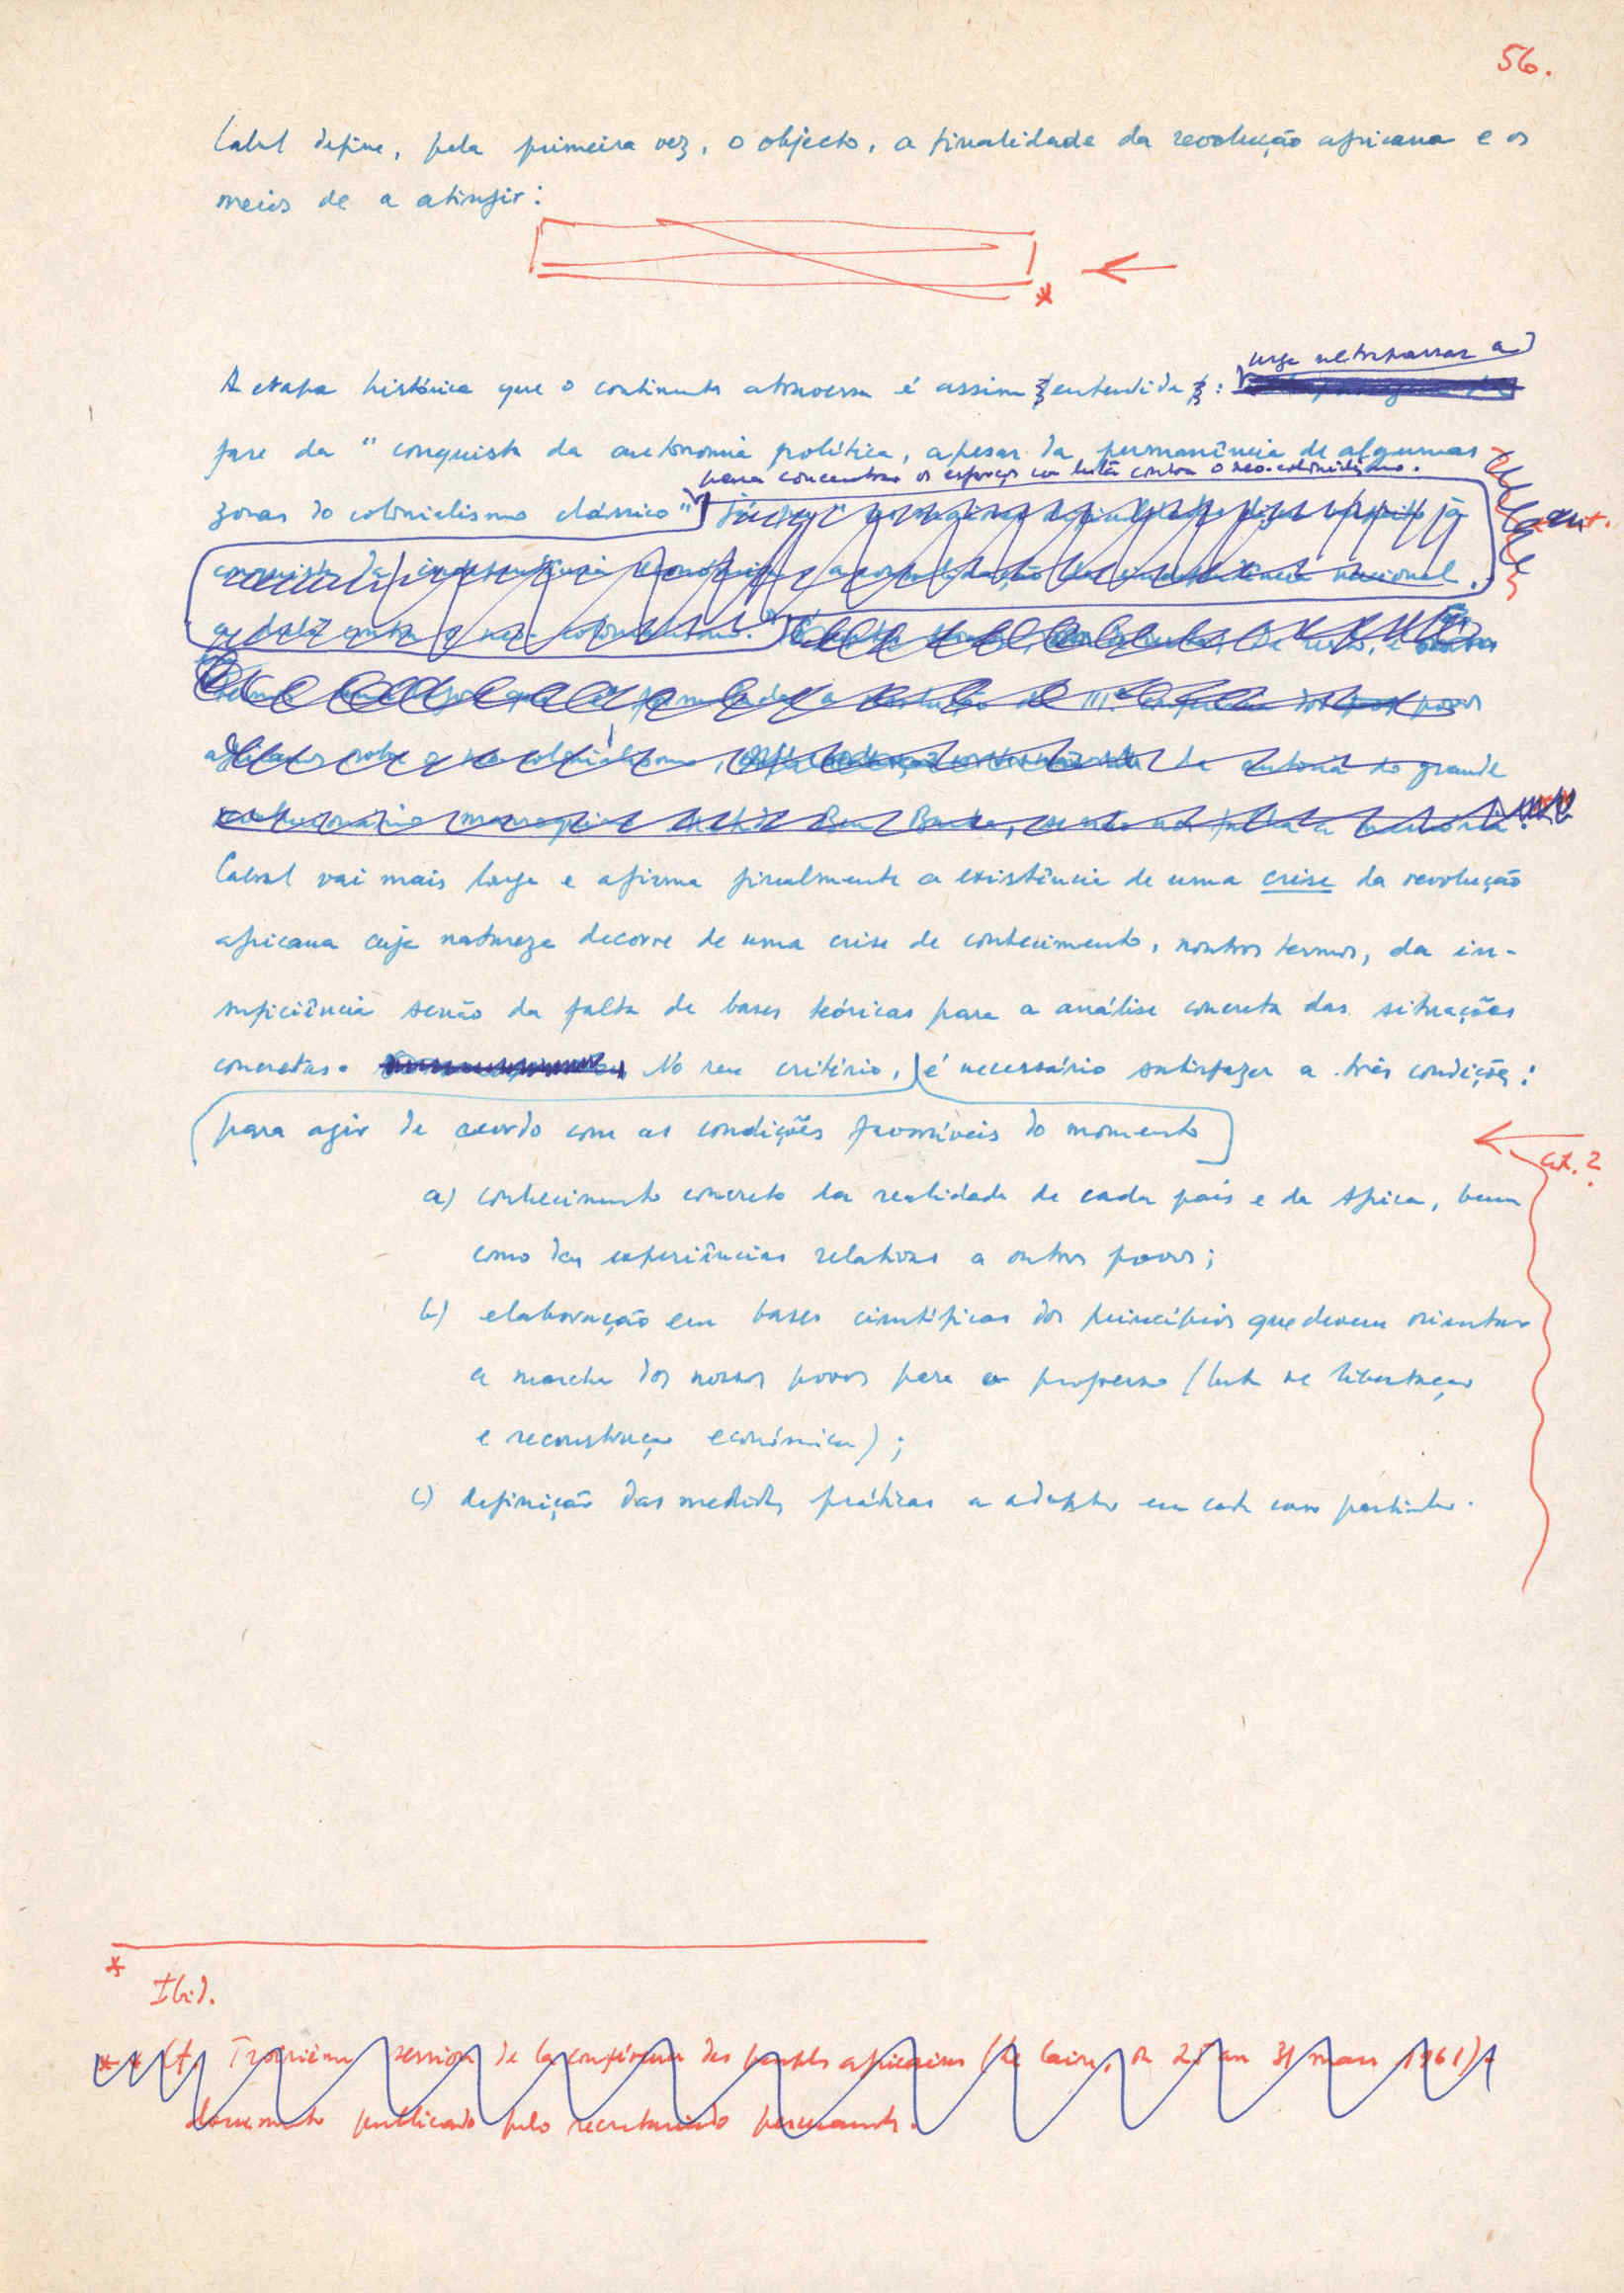 56.
Cabral define, pela primeira vez, o objecto, a finalidade da revolução africana e os
meios de a atingir:
*
urge ultrapassar a
A etapa histórica que o continente atravessa é assim entendida :
fase da "conquista da autonomia política, apesar da permanência de algumas
para concentrar os esforços na luta contra o neo-colonialismo.
zonas do colonialismo clássico"
conquista da independência económica a consolidação da independência nacional.
a luta contra o neo-colonialismo.
formulada a resolução da IIIª conferência dos povos
africanos sobre o neo-colonialismo, da autoria do grande
revolucionário marroquino Mehdi Ben Barka,
Cabral vai mais longe e afirma finalmente a existência de uma crise da revolução
africana cuja natureza decorre de uma crise de conhecimento, noutros termos, da in-
suficiência senão da falta de bases teóricas para a análise concreta das situações
concretas. No seu critério, é necessário satisfazer a três condições:
para agir de acordo com as condições favoráveis do momento
cit. ?
a) conhecimento concreto da realidade de cada país e da Africa, bem
como das experiências relativas a outros povos;
b) elaboração em bases científicas dos princípios que devem orientar
a marcha dos nossos povos para o progresso (luta de libertação
e reconstrução económica);
c) definição das medidas práticas a adoptar em cada caso particular.
*
Ibid.
* * Cf. Troisième session de la conférence des peuples africains (Le Caire, du 25 au 31 mars 1961).
documento publicado pelo secretariado permanente.